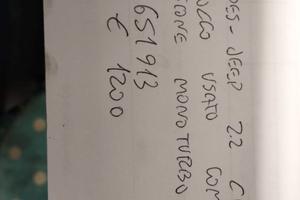 DES - JEEP 2.2 C
OCCO USATO COM
IONE MONOTURBO
651913
€ 1200